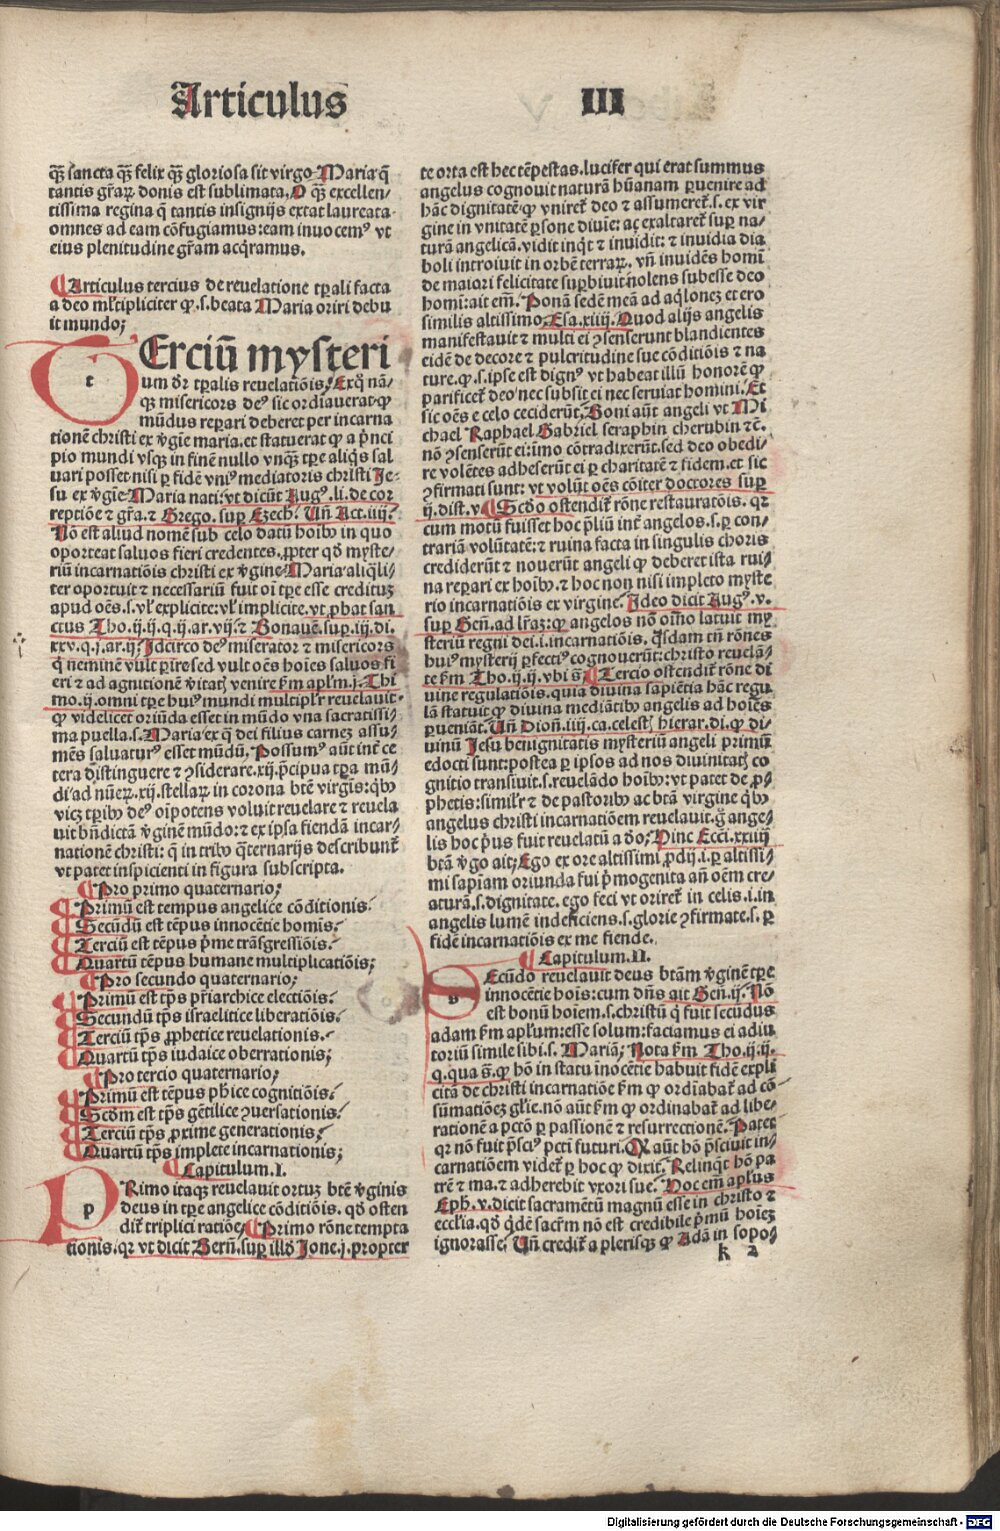 Articulus III
qȝ sancta qȝ felix qȝ gloriosa sit virgo Maria q̄
tantis gr̄aꝝ donis est sublimata. O qȝ excellen⸗
tissima regina q̄ tantis insignijs extat laureata
omnes ad eam cōfugiamus: eam inuocemꝰ vt
eius plenitudine gr̄am acq̄ramus.
¶ Articulus tercius de reuelatione tꝑali facta
a deo ml̓tipliciter ꝙ .s. beata Maria oriri debu
it mundo;
TErciū mysteri
um dr̄ tꝑalis reuelatiōis. Exq̊ nā⸗
qȝ misericors deꝰ sic ordīauerat ꝙ
mūdus reꝑari deberet per incarna
tionē christi ex v̄gīe maria. et statuerat ꝙ a pͥnci
pio mundi vsqȝ in finē nullo vnq̄ꝫ tꝑe aliq̇s sal
uari posset nisi ꝑ fidē vniꝰ mediatoris christi Je⸗
su ex v̄gīe Maria nati: vt dicūt Augꝰ. li. de cor
reptiōe ⁊ gr̄a. ⁊ Grego. suꝑ Ezech. Un̄ Act. iiij.
Nō est aliud nomē sub celo datū hoībꝰ in quo
oporteat saluos fieri credentes. ꝓpter qd̓ myste⸗
riū incarnatiōis christi ex v̄gine Maria aliq̄li⸗
ter oportuit ⁊ necessariū fuit oī tꝑe esse credituꝫ
apud oēs .s. vl̓ explicite: vl̓ implicite. vt ꝓbat san
ctus Tho. ij. ij. q. ij. ar. vij. ⁊ Bonauē. suꝑ. iij. di.
xxv. q. j. ar. ij. Idcirco deꝰ miserator ⁊ misericors
q̇ neminē vult ꝑire sed vult oēs hoīes saluos fi
eri ⁊ ad agnitionē v̄itatꝭ venire ẜm apl̓m. j. Thi
mo. ij. omni tꝑe huiꝰ mundi multipl̓r reuelauit.
ꝙ videlicet oriūda esset in mūdo vna sacratissi⸗
ma puella .s. Maria ex q̄ dei filius carneꝫ assu⸗
mēs saluaturꝰ esset mūdū. Possumꝰ aūt int̄ ce
tera distinguere ⁊ ꝯsiderare .xij. p̄cipua tꝑa mū⸗
di ad nūeꝝ .xij. stellaꝝ in corona btē virgīs: qͥbꝰ
viꝫ tꝑibꝰ deꝰ oīpotens voluit reuelare ⁊ reuela
uit bn̄dictā v̄ginē mūdo: ⁊ ex ipsa fiendā incar⸗
nationē christi: q̄ in tribꝰ q̄ternarijs describunt̄
vt patet inspicienti in figura subscripta.
¶ Pro primo quaternario;
¶ Primū est tempus angelice cōditionis.
¶ Secundū est tēpus innocētie homis.
¶ Terciū est tēpus pͥme trāsgressiōis.
¶ Quartū tēpus humane multiplicatiōis;
¶ Pro secundo quaternario;
¶ Primū est tp̄s pr̄iarchice electiōis.
¶ Secundū tp̄s israelitice liberatiōis.
¶ Terciū tp̄s ꝓphetice reuelationis.
¶ Quartū tp̄s iudaice oberrationis;
¶ Pro tercio quaternario;
¶ Primū est tēpus ph̄ice cognitiōis.
¶ Scd̓m est tp̄s gētilice ꝯuersationis.
¶ Terciū tp̄s ꝓxime generationis.
¶ Quartū tp̄s implete incarnationis;
¶ Capitulum .I.
PRimo itaqȝ reuelauit ortuꝫ btē v̄ginis
deus in tꝑe angelice cōditiōis. qd̓ osten
dit̄ triplici ratiōe. ¶ Primo rōne tempta
tionis. qꝛ vt dicit Bern̄. suꝑ illd̓ Jone. j. propter
te orta est hec tēpestas. lucifer qui erat summus
angelus cognouit naturā hūanam ꝑuenire ad
hāc dignitatē ꝙ vniret̄ deo ⁊ assumeret̄ .s. ex vir
gine in vnitatē ꝑsone diuīe: ac exaltaret̄ suꝑ na⸗
turā angelicā. vidit inq̇t ⁊ inuidit: ⁊ inuidia dia
boli introiuit in orbē terraꝝ. vn̄ inuidēs homī
de maiori felicitate suꝑbiuit nolens subesse deo
homī: ait em̄. Ponā sedē meā ad aq̇lonē ⁊ ero
similis altissimo. Esa. xiiij. Quod alijs angelis
manifestauit ⁊ multi ei ꝯsenserunt blandientes
eidē de decore ⁊ pulcritudine sue cōditiōis ⁊ na
ture. ꝙ .s. ipse est dignꝰ vt habeat illū honorē ꝙ
parificet̄ deo nec subsit ei nec seruiat homini. Et
sic oēs e celo ceciderūt. Boni aūt angeli vt Mi
chael Raphael Gabriel seraphin cherubin ⁊c̄.
nō ꝯsenserūt ei: īmo cōtradixerūt. sed deo obedi⸗
re volētes adheserūt ei ꝑ charitatē ⁊ fidem. et sic
ꝯfirmati sunt: vt volūt oēs cōiter doctores suꝑ
ij. dist. v. ¶ Scd̓o ostendit̄ rōne restauratōis. qꝛ
cum motū fuisset hoc p̄liū int̄ angelos .s. ꝑ con⸗
trariam volūtatē: ⁊ ruina facta in singulis choris
crediderūt ⁊ nouerūt angeli ꝙ deberet ista rui⸗
na reꝑari ex hoībꝰ. ⁊ hoc non nisi impleto myste
rio incarnatiōis ex virgine. Ideo dicit Augꝰ. v.
suꝑ Gen̄. ad lr̄aꝫ: ꝙ angelos nō oīno latuit my
steriū regni dei .i. incarnatiōis. Q̇sdam tn̄ rōnes
huiꝰ mysterij ꝑfectiꝰ cognouerūt: christo reuelā⸗
te ẜm Tho. ij. ij. vbi s̄. ¶ Tercio ostendit̄ rōne di
uine regulatiōis. quia diuina sapiētia hāc regu
lā statuit ꝙ diuina mediātibꝰ angelis ad hoīes
ꝑueniāt. Un̄ Dion̄. iiij. ca. celestꝭ hierar. di. ꝙ di⸗
uinū Jesu benignitatis mysteriū angeli primū
edocti sunt: postea ꝑ ipsos ad nos diuinitatꝭ co
gnitio transiuit .s. reuelādo hoībꝰ: vt patet de ꝓ⸗
phetis: simil̓r ⁊ de pastoribꝰ ac btā virgine qͥbꝰ
angelus christi incarnatiōem reuelauit. g̊ ange⸗
lis hoc pͥus fuit reuelatū a deo; Hinc Ecci. xxiiij
btā v̄go ait; Ego ex ore altissimi ꝓdij .i. ꝑ altissi⸗
mi sapīam oriunda fui pͥmogenita an̄ oēm cre⸗
aturā .s. dignitate. ego feci vt oriret̄ in celis .i. in
angelis lumē indeficiens .s. glorie ꝯfirmate .s. ꝑ
fidē incarnatiōis ex me fiende.
¶ Capitulum .II.
SEcūdo reuelauit deus btām v̄ginē tꝑe
innocētie hoīs: cum dn̄s ait Gen̄. ij. Nō
est bonū hoīem .s. christū q̇ fuit secūdus
adam ẜm apl̓um: esse solum: faciamus ei adiu
toriū simile sibi .s. Mariā; Nota ẜm Tho. ij. ij.
q. qua s̄. ꝙ hō in statu inocētie habuit fidē expli
citā de christi incarnatiōe ẜm ꝙ ordīabat̄ ad cō⸗
sūmatiōeꝫ gl̓ie. nō aūt ẜm ꝙ ordinabat̄ ad libe⸗
rationē a pctō ꝑ passionē ⁊ resurrectionē. Patet
qꝛ nō fuit p̄sciꝰ pctī futuri. Qꝫ aūt hō p̄sciuit in⸗
carnatiōem videt̄ ꝑ hoc ꝙ dixit. Relinq̇t hō pa
trē ⁊ ma. ⁊ adherebit vxori sue. Hoc em̄ apl̓us
Eph. v. dicit sacramētū magnū esse in christo ⁊
ecclīa. qd̓ q̇dē sacr̄m nō est credibile pͥmū hoīeꝫ
ignorasse. Un̄ credit̄ a plerisqȝ ꝙ Adā in sopo⸗
k 2
Digitalisierung gefördert durch die Deutsche Forschungsgemeinschaft - DFG